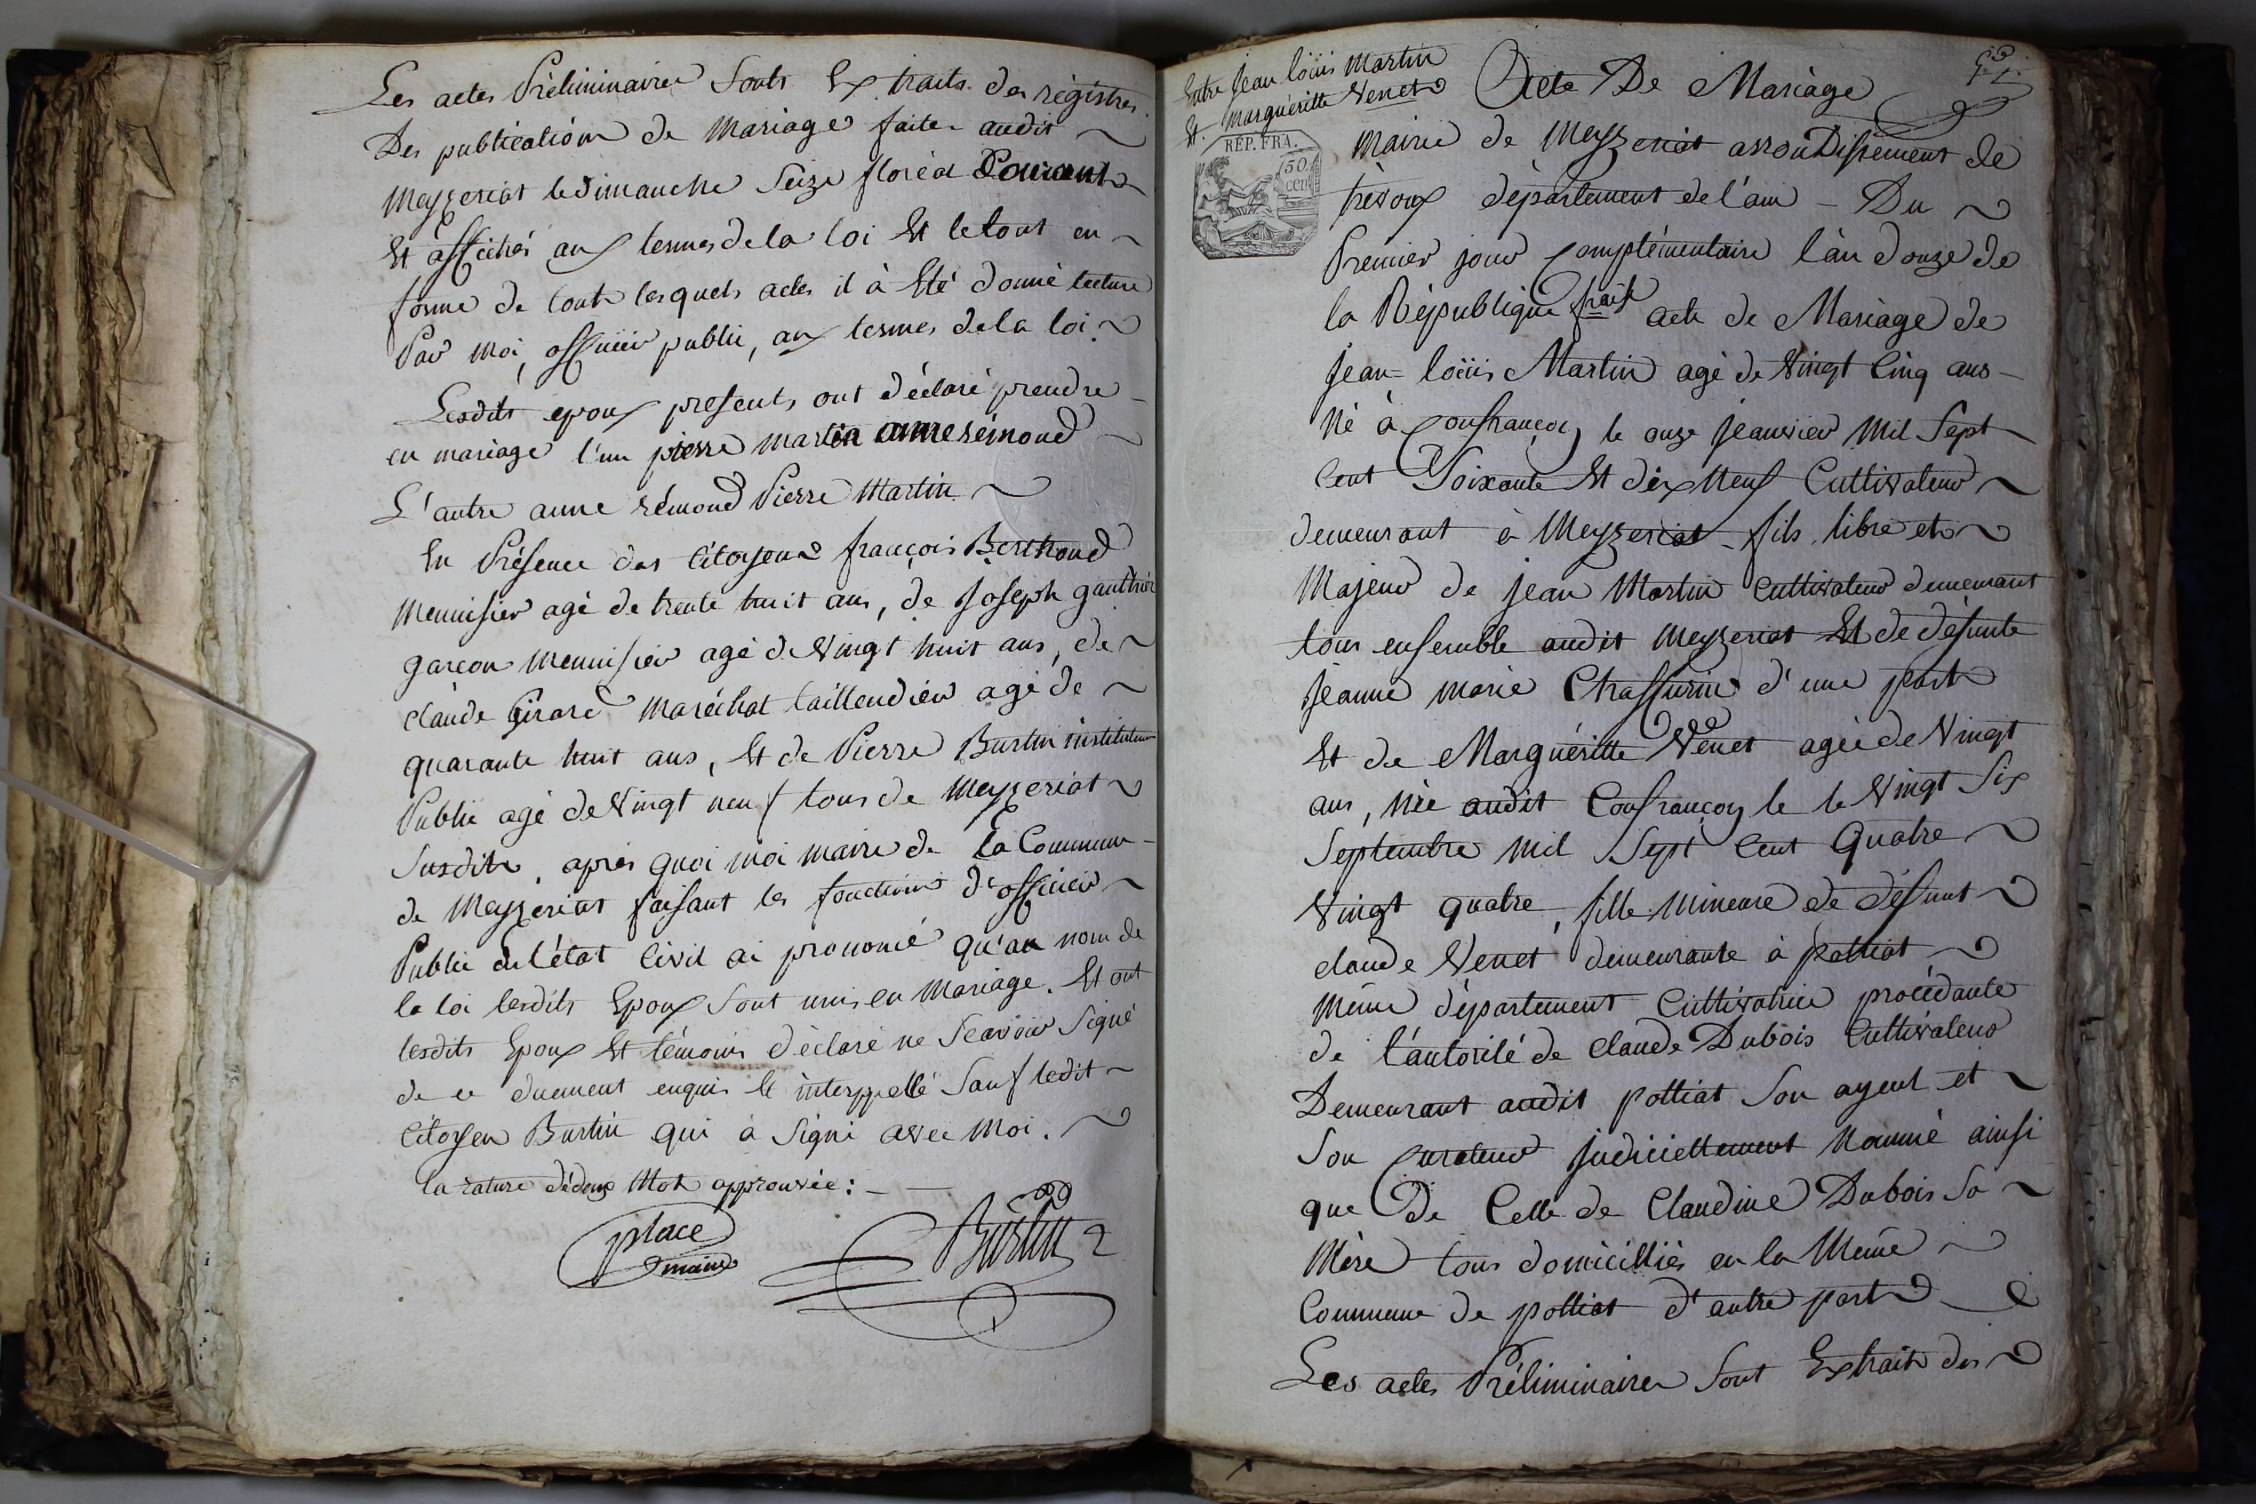 Les actes Préliminaires sonts Extraits des régistres
Des publications de Mariage faites audit
Meyzeriat le dimanche seize floréal Courant
Et affichés aux termes de la loi Et le tout en
forme de touts lesquels actes il à Eté donné lecture
Par Moi, officier public, aux termes de la loi.
Lesdits epoux presents ont déclaré prendre
en mariage l'un pierre martin anne rémond
L'autre anne rémond Pierre Martin
En Présence des Citoyens françois Berthoud
Menuisier agé de trente huit ans, de Joseph gauthier
garcon Menuisier agé de Vingt huit ans, de
claude Girard Maréchal taillendier agé de
quarante huit ans, Et de Pierre Burtin instituteur
Public agé de Vingt neuf tous de Meyzeriat
Susdits, après quoi moi maire de la Commune
de Meyzeriat faisant les fonctions d'officier
Public de l'état Civil ai prononcé qu'au nom de
la loi lesdits Epoux sont unis en Mariage. Et ont
lesdits Epoux Et témoins déclaré ne Scavoir Signé
de ce duement enquis et interppellé Sauf ledit
Citoyen Burtin qui à Signé avec Moi.
la rature dedeux Mots approuvée:
place
maire
Burtin
Entre Jean loüis Martin
Et Marguéritte Venet
REP. FRA.
50
cent
Acte De Mariage
Mairie de Meyzeriat arrondissement de
trévoux département de l'ain - Du
Premier jour Complémentaire l'an douze de
la République fraise acte de Mariage de
Jean=loüis Martin agé de Vingt Cinq ans
Né à Confrançon le onze Jeanvier Mil Sept
Cent Soixante Et dix Neuf Cultivateur
demeurant à Meyzeriat fils libre et
Majeur de Jean Martin Cultivateur demeurant
tous ensemble audit Meyzeriat Et de défunte
Jeanne marie Chassurin d'une part
Et de Marguéritte Venet agée de Vingt
ans, Née audit Confrançon le le Vingt Six
Septembre Mil Sept Cent Quatre
Vingt quatre, fille Mineure de défunt
claude Venet demeurante à polliat
Même département Cultivatrice procédante
de l'autorité de claude Dubois Cultivateur
Demeurant audit polliat Son ayeul et
Son Curateur judiciellement Nommé ainsi
que De Celle de Claudine Dubois Sa
Mère tous domicilliés en la Même
Commune de polliat d'autre part
Les actes Préliminaires Sont Extraits des